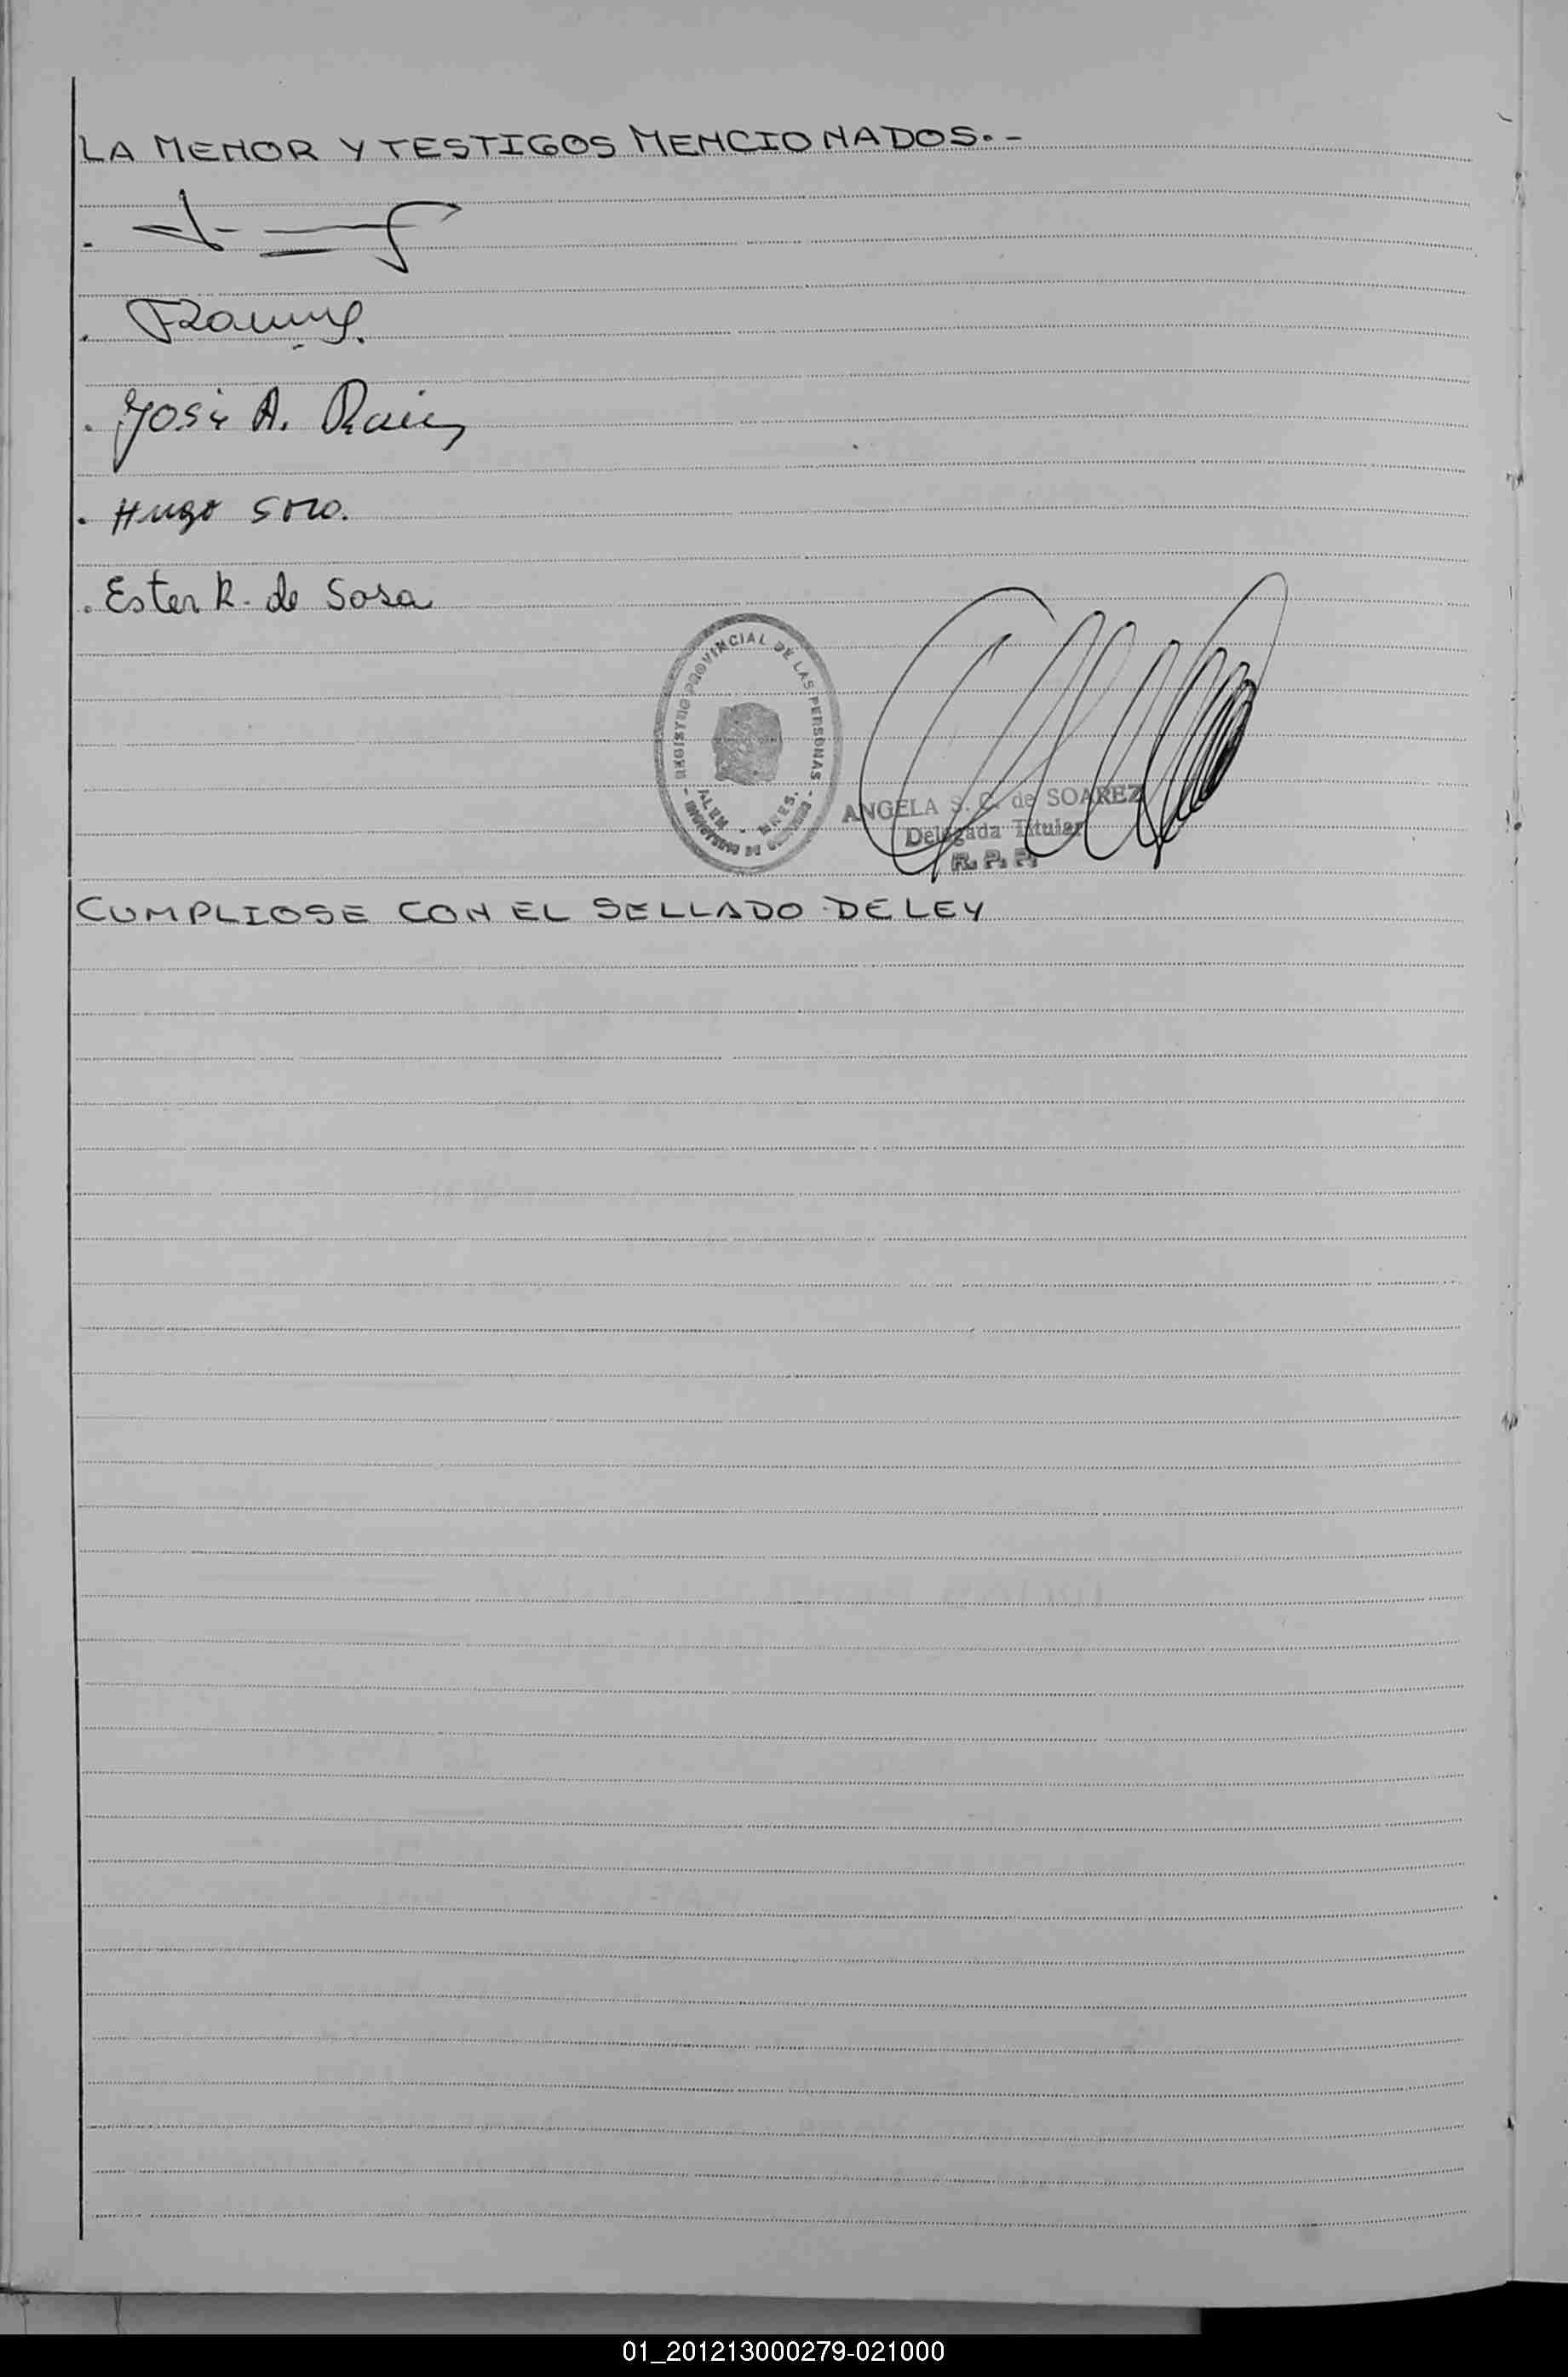 LA MENOR Y TESTIGOS MENCIONADOS.-
José A.
Hugo
Ester R. de Sosa
REGISTRO PROVINCIAL DE LAS PERSONAS
ALEM - MNES.
MINISTERIO DE GOBIERNO
ANGELA S. C. de SOAREZ
Delegada Titular
R. P. P.
CUMPLIOSE CON EL SELLADO DE LEY
01_201213000279-021000